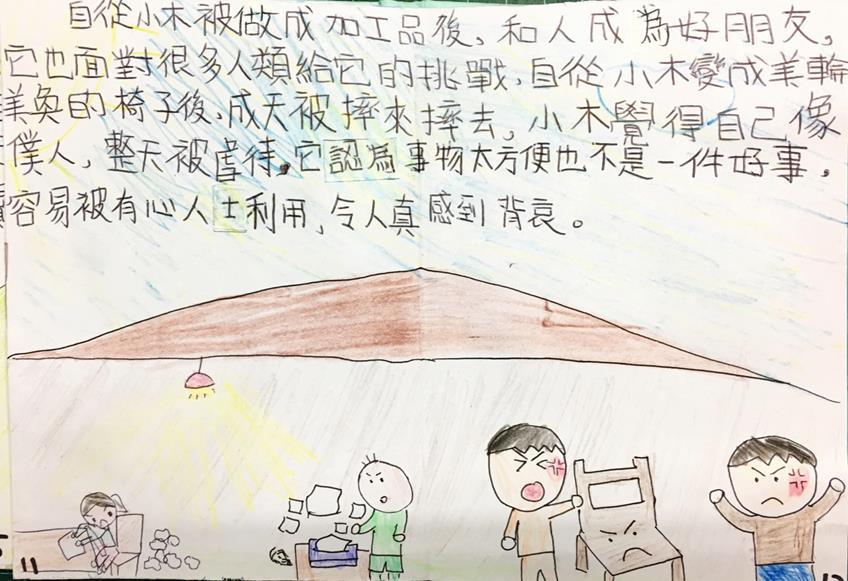 自從小木被做成加工品後，和人成為好朋友，
它也面對很多人類給它的挑戰，自從小木變成美輪
美奐的椅子後，成天被摔來摔去，小木覺得自己像
僕人，整天被虐待。它認為事物太方便也不是一件好事，
容易被有心人士利用，令人真感到背哀。
11